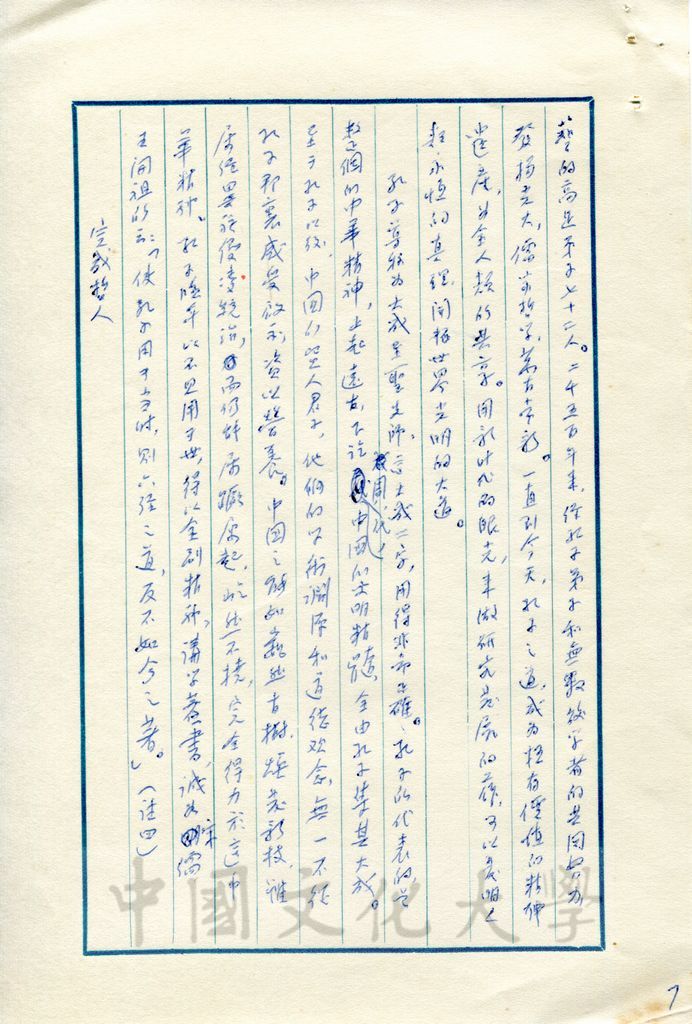 藝的高足弟子七十二人。二千五百年來,經孔子弟子和無數後學者的共同努力
發揚光大,儒家哲學,萬古常新。一直到今天,孔子之道,成為極有價值的精神
遺產,為全人類的共享。用新時代的眼光,來做研究發展的工作,可以發明
永恆的真理,開拓世界光明的大道。
孔子尊稱為大成至聖先師,這大成二字,用得非常正確,孔子所代表的是
整個的中華精神,上起遠古,下迄周代,中國的文明精髓,全由孔子集其大成。
至于孔子以後,中國的聖人君子,他們的學術淵源和道德觀念,無一不從
孔子那裏感受啟示,資以營養。中國之能如蒼然古樹,煥發新枝,雖
屢經異族侵凌統治,而仍能屢蹶屢起,屹然不撓,完全得力於這中
華精神。孔子晚年以不見用于世,得以全副精神,講學著書,誠如宋儒
王開祖所云:「使孔子用于當時,則六經之道,反不如今之著。」(註四)
完成哲人
中國文化大學
7